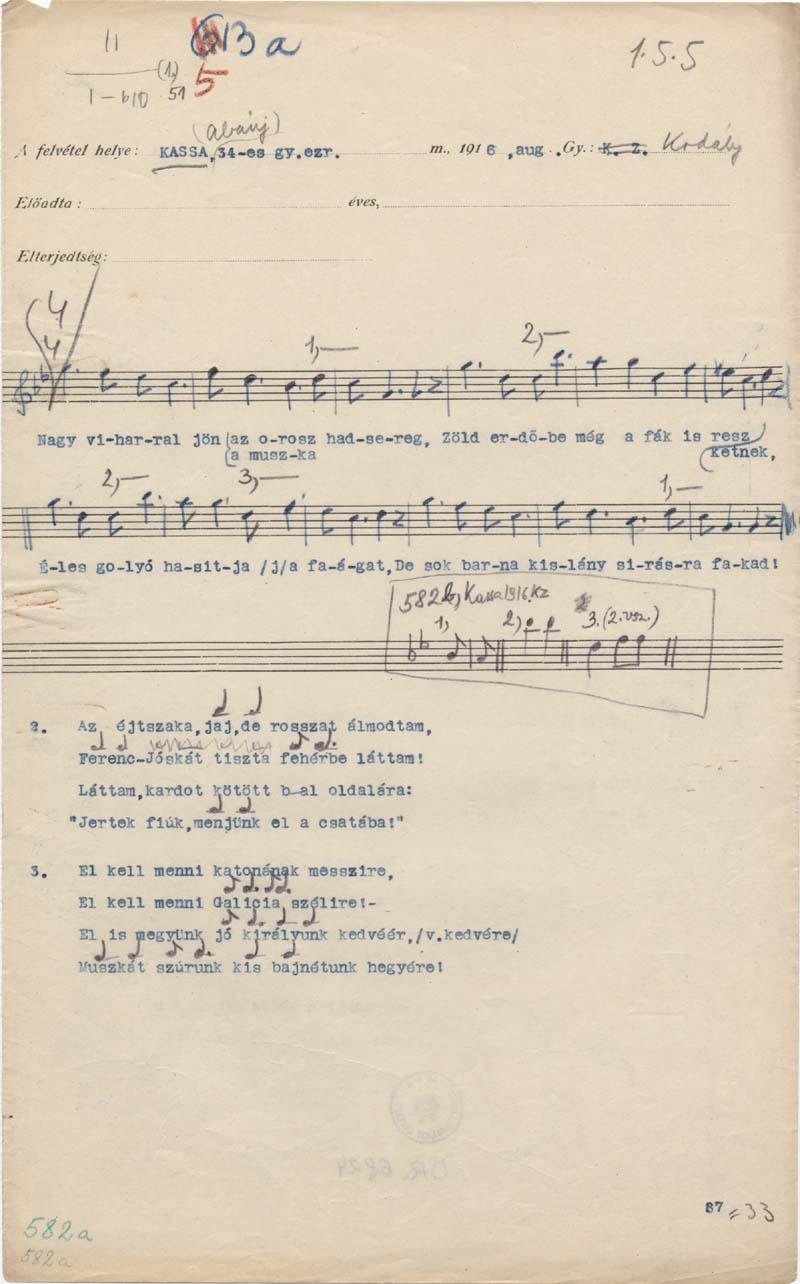 II 13 a
(1,) 1.5.5
1-610 51 5
(abauj)
A felvétel helye: KASSA, 34-es gy.ezr. m., 1916 ,aug .Gy.: K. Z. Kodály
Előadta: éves,
Elterjedtség:
4
4
1,— 2,—
Nagy vi-har-ral jön (az o-rosz had-se-reg, Zöld er-dő-be még a fák is resz
(a musz-ka ketnek,
2,— 3,— 1,—
É-les go-lyó ha-sit-ja /j/a fa-á-gat,De sok bar-na kis-lány si-rás-ra fa-kad!
582b, Kassa 1916. KZ
1, 2, 3. (2. vsz.)
2. Az éjtszaka,jaj,de rosszat álmodtam,
Ferenc-Jóskát tiszta fehérbe láttam!
Láttam,kardot kötött b-al oldalára:
"Jertek fiúk,menjünk el a csatába!"
3. El kell menni katonának messzire,
El kell menni Galicia szélire!-
El is megyünk jó királyunk kedvéér,/v.kedvére/
Muszkát szúrunk kis bajnétunk hegyére!
BR. 6824
87 = 33
582a
582a